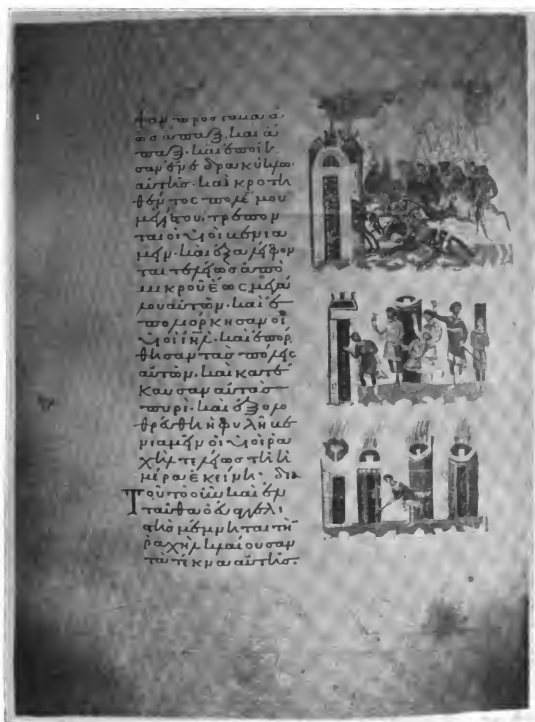 φαν πρὸς
ὡσ ἅπαξ. καὶ ἅ
παξ. καὶ ἐποίη
σαν κύκλω
αὐτῆσ. καὶ κροτη
θέντος πολέμου
τρέπον
ται οἱ υἱοὶ βενια
μήν. καὶ ἐξαλείφον
ται τελείωσ ἀπὸ
μικροῦ ἕως μεγά
λου αὐτῶν. καὶ ἐ
πολιόρκησαν οἱ
υἱοὶ ιηλ. καὶ ἐπόρ
θησαν τὰσ πόλεισ
αὐτῶν. καὶ κατέ
καυσαν αὐτὰσ
πυρί. καὶ ἐξολο
θρεύθη ἡ φυλὴ βε
νιαμὴν οἱ υἱοὶ ρα
χὴλ τελείωσ τῆ ἡ
μέρα ἐκείνη. διὰ
Τοῦτο οὖν καὶ ἐν
ταῦθα ὁ εὐαγγελι
στὴσ μέμνηται τὴν
ραχὴλ κλαίουσαν
τὰ τέκνα αὐτῆσ.